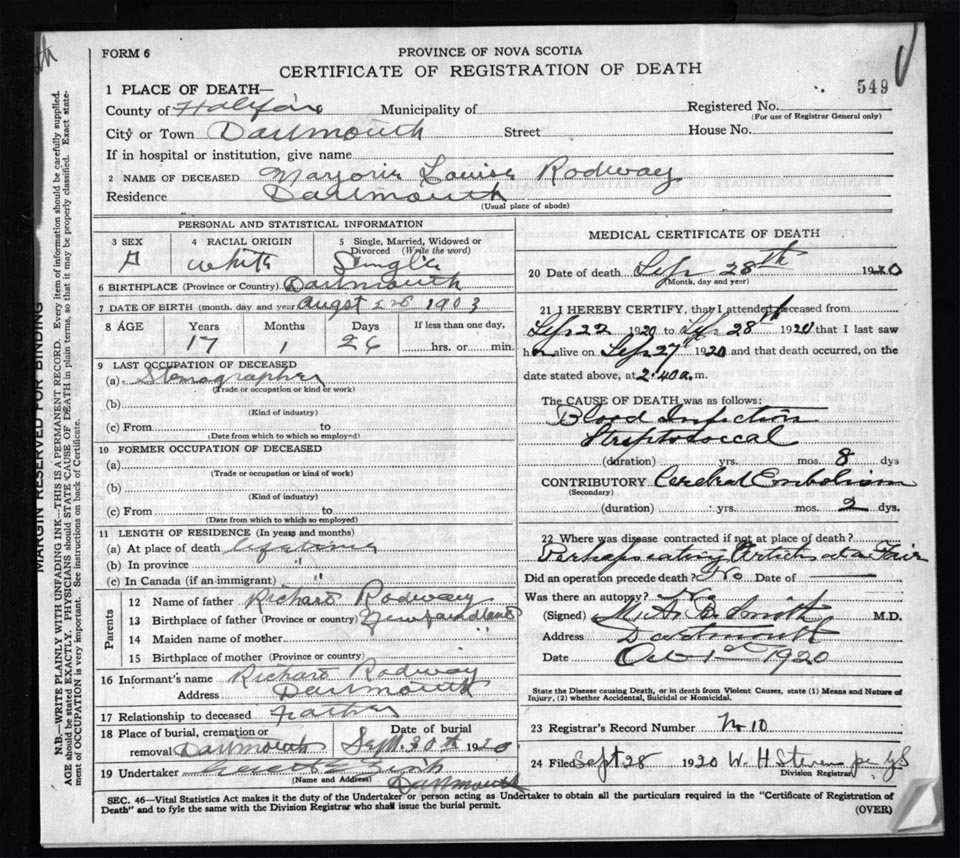 FORM 6
PROVINCE OF NOVA SCOTIA
CERTIFICATE OF REGISTRATION OF DEATH
549
1 PLACE OF DEATH—
County of Halifax Municipality of Registered No.
(For use of Registrar General only)
City or Town Dartmouth Street House No.
If in hospital or institution, give name
2 NAME OF DECEASED Marjorie Louise Rodway
Residence Dartmouth
(Usual place of abode)
PERSONAL AND STATISTICAL INFORMATION
3 SEX 4 RACIAL ORIGIN 5 Single, Married, Widowed or Divorced (Write the word)
F white Single
6 BIRTHPLACE (Province or Country) Dartmouth
7 DATE OF BIRTH (month, day and year) Augst 2nd 1903
8 AGE Years Months Days If less than one day,
17 1 26 hrs. or min.
9 LAST OCCUPATION OF DECEASED
(a) Stenographer
(Trade or occupation or kind or work)
(b)
(Kind of industry)
(c) From to
(Date from which to which so employed)
10 FORMER OCCUPATION OF DECEASED
(a)
(Trade or occupation or kind of work)
(b)
(Kind of industry)
(c) From to
(Date from which to which so employed)
11 LENGTH OF RESIDENCE (In years and months)
(a) At place of death lifetime
(b) In province "
(c) In Canada (if an immigrant) "
Parents
12 Name of father Richard Rodway
13 Birthplace of father (Province or country) Newfoundland
14 Maiden name of mother
15 Birthplace of mother (Province or country)
16 Informant's name Richard Rodway
Address Dartmouth
17 Relationship to deceased Father
18 Place of burial, cremation or removal Dartmouth Date of burial Sept. 30th 1920
19 Undertaker
(Name and Address) Dartmouth
MEDICAL CERTIFICATE OF DEATH
20 Date of death Sep 28th 1920
(Month, day and year)
21 I HEREBY CERTIFY, that I attended deceased from
Sep 22 1920 to Sep 28th 1920 that I last saw
her alive on Sep 27th 1920 and that death occurred, on the
date stated above, at 2.40 a.m.
The CAUSE OF DEATH was as follows:
Blood Infection
Streptococcal
(duration) yrs. mos. 8 dys
CONTRIBUTORY Cerebral Embolism
(Secondary)
(duration) yrs. mos. 2 dys.
22 Where was disease contracted if not at place of death?
Perhaps eating at a Fair
Did an operation precede death? No Date of —
Was there an autopsy? No
(Signed) M. A. B. Smith M.D.
Address Dartmouth
Date Oct 1st 1920
State the Disease causing Death, or in death from Violent Causes, state (1) Means and Nature of
Injury, (2) whether Accidental, Suicidal or Homicidal.
23 Registrar's Record Number 10
24 Filed Sept 28 1920 W. H. Stevens per
Division Registrar
SEC. 46—Vital Statistics Act makes it the duty of the Undertaker or person acting as Undertaker to obtain all the particulars required in the "Certificate of Registration of
Death" and to fyle the same with the Division Registrar who shall issue the burial permit.
(OVER)
MARGIN RESERVED FOR BINDING
N.B.—WRITE PLAINLY WITH UNFADING INK—THIS IS A PERMANENT RECORD. Every item of information should be carefully supplied.
AGE should be stated EXACTLY. PHYSICIANS should STATE CAUSE OF DEATH in plain terms, so that it may be properly classified. Exact state-
ment of OCCUPATION is very important. See instructions on back of Certificate.